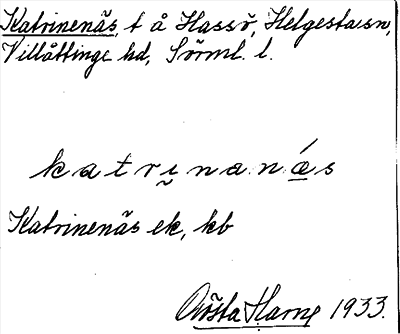 Katrinenäs, t å Hassö, Helgesta sn,
Villåttinge hd, Sörml. l.
katrinanä́s
Katrinenäs ek, kb
Gösta Harne 1933.